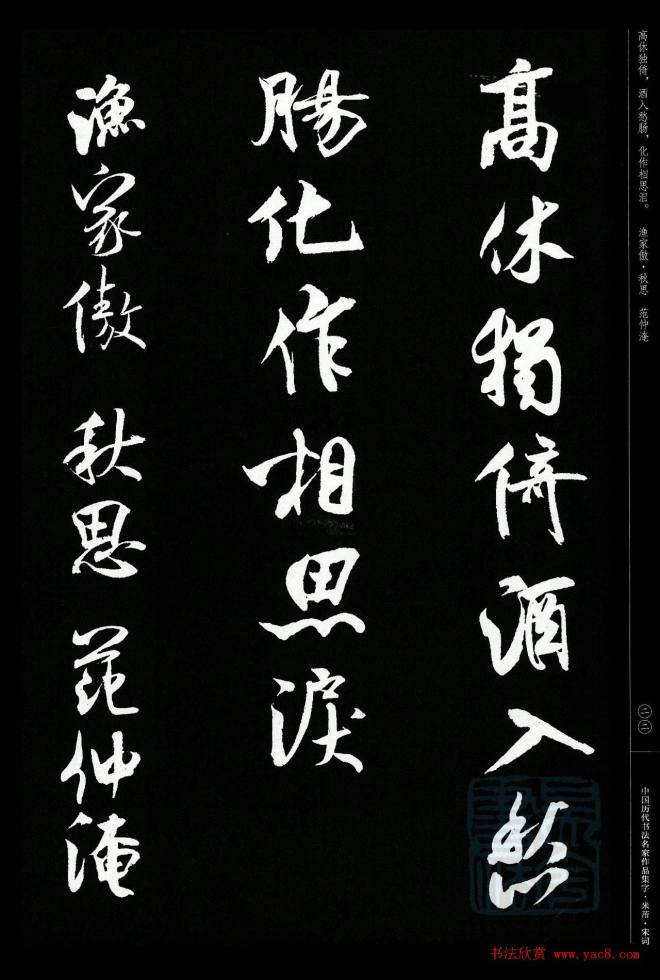 高休獨倚酒入愁
腸化作相思淚
漁家傲 秋思 范仲淹
高休独倚，酒入愁肠，化作相思泪。 渔家傲·秋思 范仲淹
二二
中国历代书法名家作品集字·米芾·宋词
书法欣赏 www.yac8.com